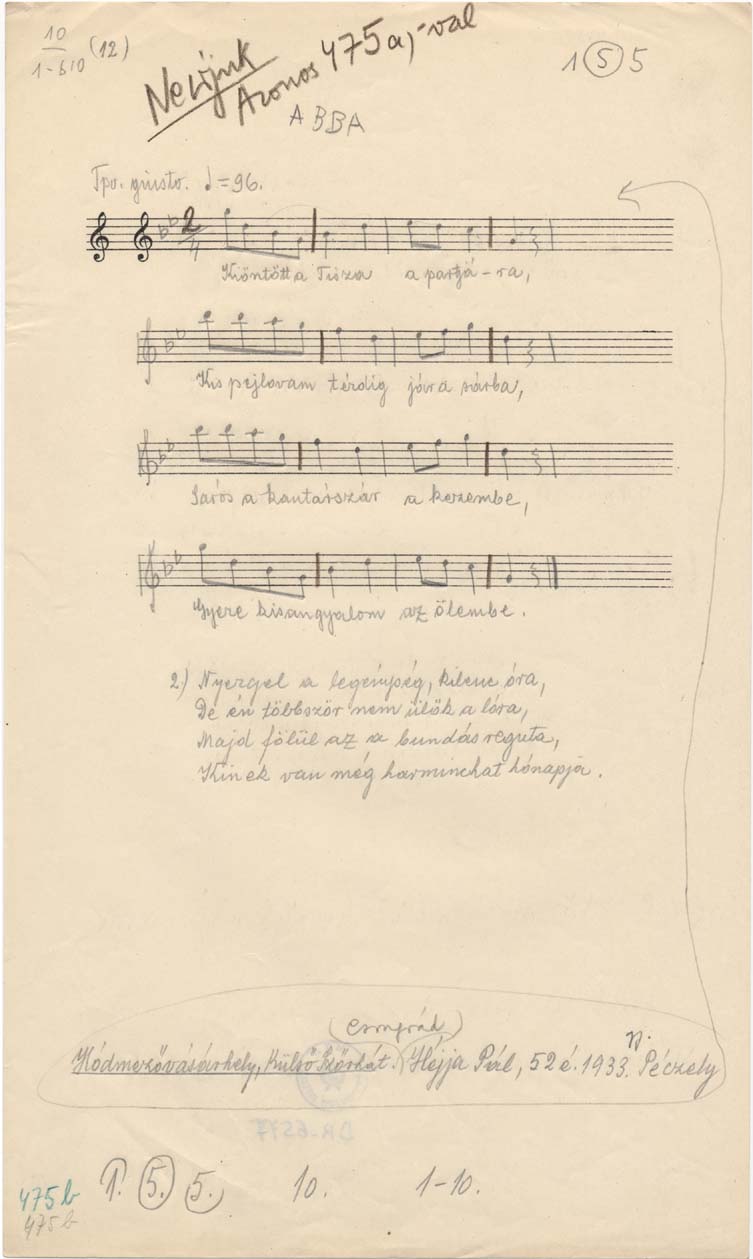 10
1-610 (12)
Ne írjuk
Azonos 475 a,-val
1 (5) 5
A B B A
Tpo. giusto. ♩=96.
2
4
Kiöntött a Tisza a partjá-ra,
Kis pejlovam térdig jár a sárba,
Sáros a kantárszár a kezembe,
Gyere kisangyalom az ölembe.
2.) Nyergel a legénység, kilenc óra,
De én többször nem ülök a lóra,
Majd fölül az a bundás reguta,
Kinek van még harminchat hónapja.
(Csongrád)
Hódmezővásárhely, Külső Szőrhát. Héjja Pál, 52 é. 1933. Péczely
DR-6577
475b 1. (5.) 5. 10. 1-10.
475b